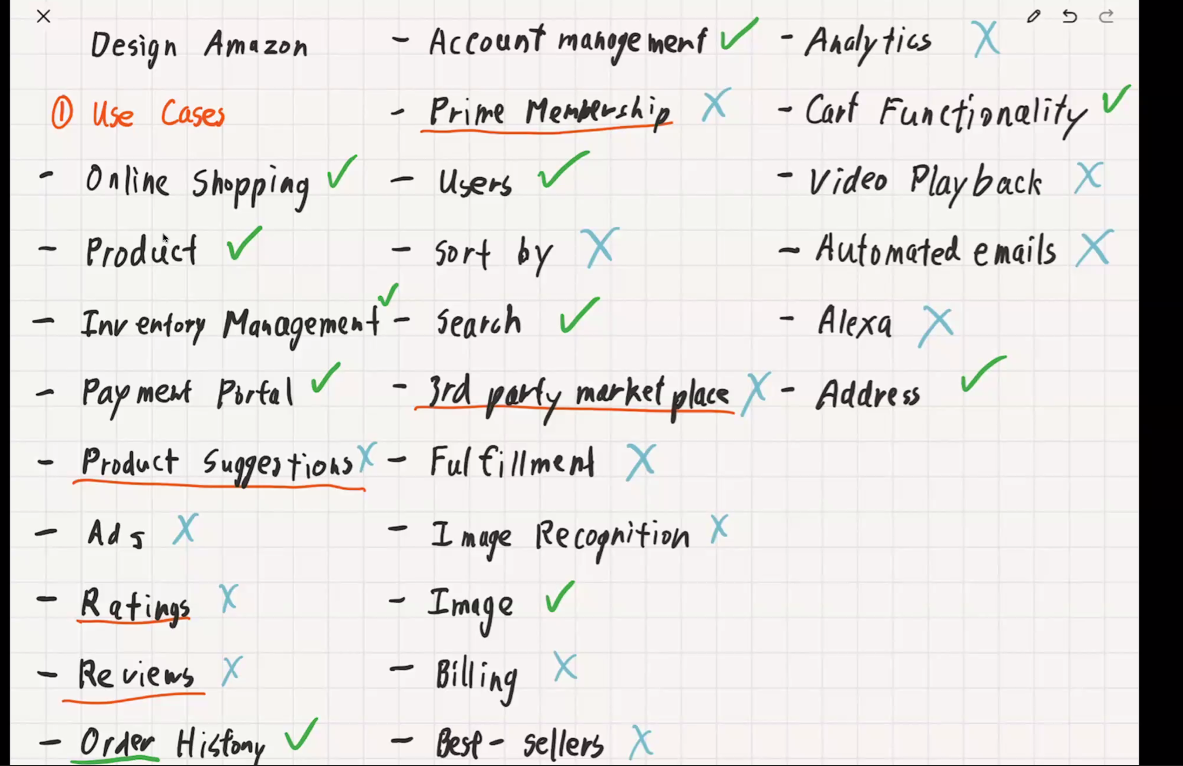 Design Amazon
① Use Cases
- Online Shopping ✓
- Product ✓
- Inventory Management ✓
- Payment Portal ✓
- Product Suggestions X
- Ads X
- Ratings X
- Reviews X
- Order History ✓
- Account management ✓
- Prime Membership X
- Users ✓
- Sort by X
- Search ✓
- 3rd party market place X
- Fulfillment X
- Image Recognition X
- Image ✓
- Billing X
- Best-sellers X
- Analytics X
- Cart Functionality ✓
- Video Playback X
- Automated emails X
- Alexa X
- Address ✓